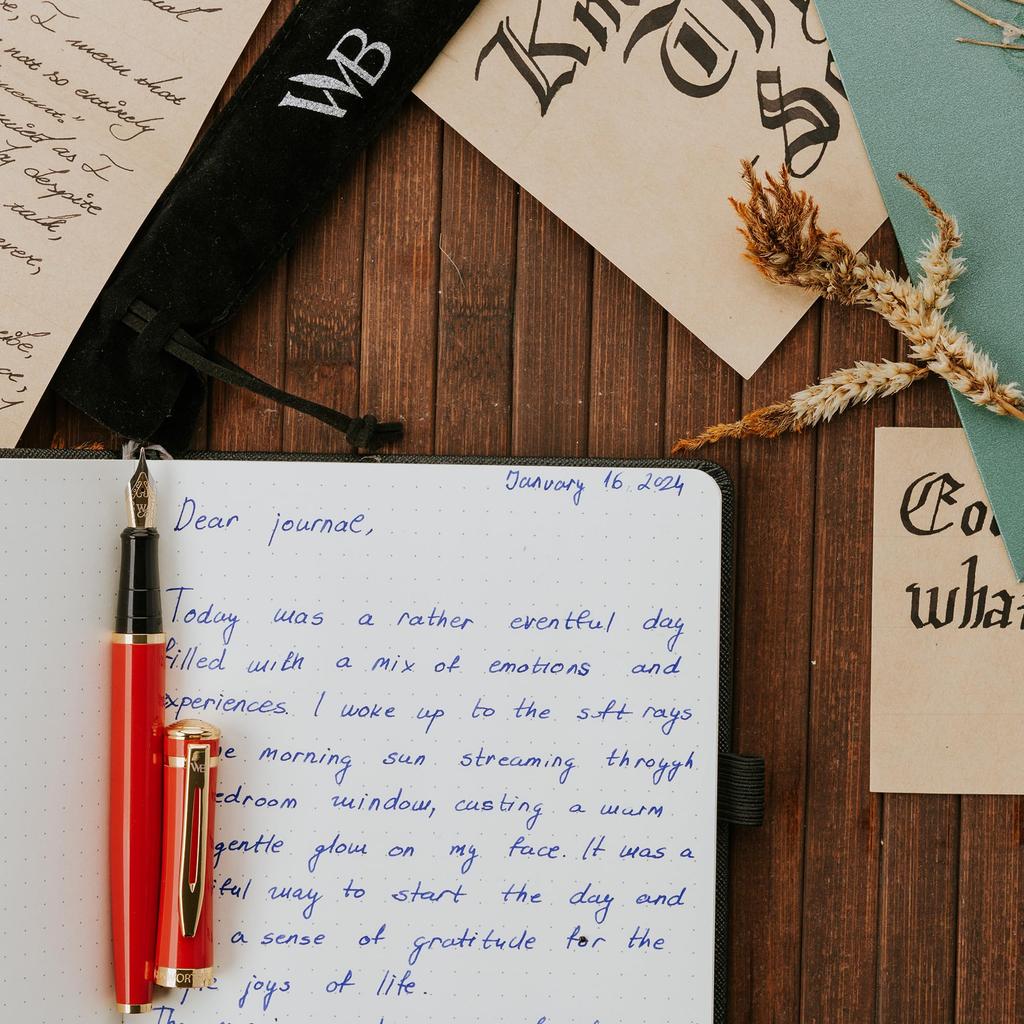 I mean that
not so entirely
meant."
as I
despite
talk,
WB
January 16 2024
Dear journal,
Today was a rather eventful day
filled with a mix of emotions and
experiences. I woke up to the soft rays
morning sun streaming throygh
window, casting a warm
gentle glow on my face. It was a
way to start the day and
a sense of gratitude for the
joys of life.
what
WB